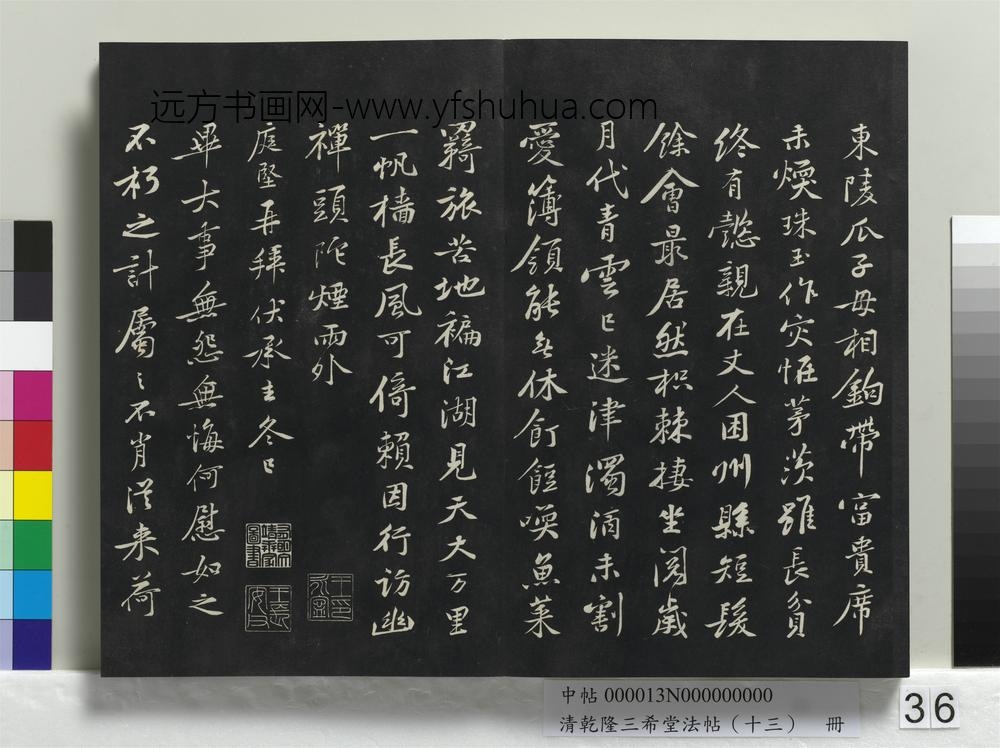 远方书画网-www.yfshuhua.com
東陵瓜子母相鉤帶富貴席
未煖珠玉作灾怪茅茨雖長貧
終有懿親在丈人困州縣短髮
餘會最居然枳棘棲坐閱歲
月代青雲已迷津濁酒未割
愛簿領能無休飣餖喚魚菜
羇旅苦地褊江湖見天大万里
一帆檣長風可倚賴因行訪幽
禪頭陀煙雨外
庭堅再拜伏承去冬已
畢大事無怨無悔何慰如之
不朽之計屬之不肖從来荷
中帖 000013N000000000
清乾隆三希堂法帖（十三） 冊
36